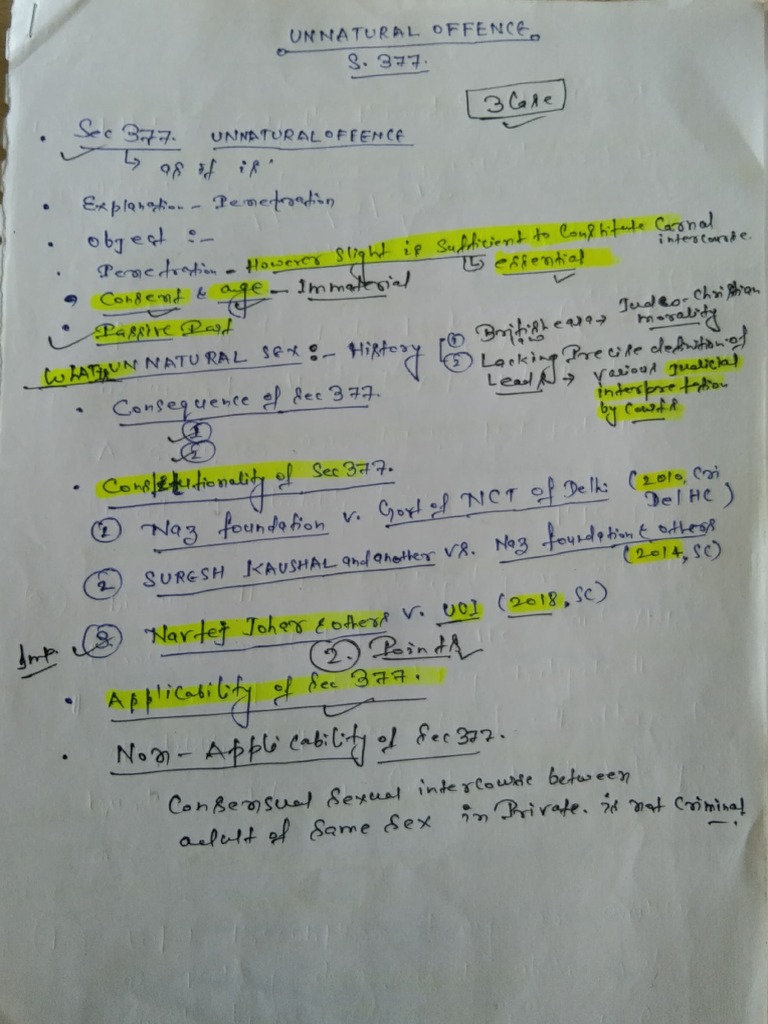 UNNATURAL OFFENCE
S. 377.
3 Case
• Sec 377. UNNATURAL OFFENCE
↳ as it is.
• Explanation - Penetration
• Object :-
• Penetration - However slight is Sufficient to Constitute Carnal intercourse.
↳ essential
• Consent & age - Immaterial
• Passive Part
WHAT UNNATURAL SEX :- History
① British era → Judeo-Christian morality
② Lacking Precise definition of
Leads → various Judicial
interpretation
by Courts
• Consequence of Sec 377.
①
②
• Constitutionality of Sec 377.
① Naz foundation v. Govt of NCT of Delhi (2010, Cri
Del HC)
② SURESH KAUSHAL and another vs. Naz foundation & others
(2014, SC)
Imp. ③ Nartej Joher & others v. UOI (2018, SC)
②. Points
• Applicability of Sec 377.
• Non-Applicability of Sec 377.
Consensual sexual intercourse between
adult of same sex in Private. is not Criminal.